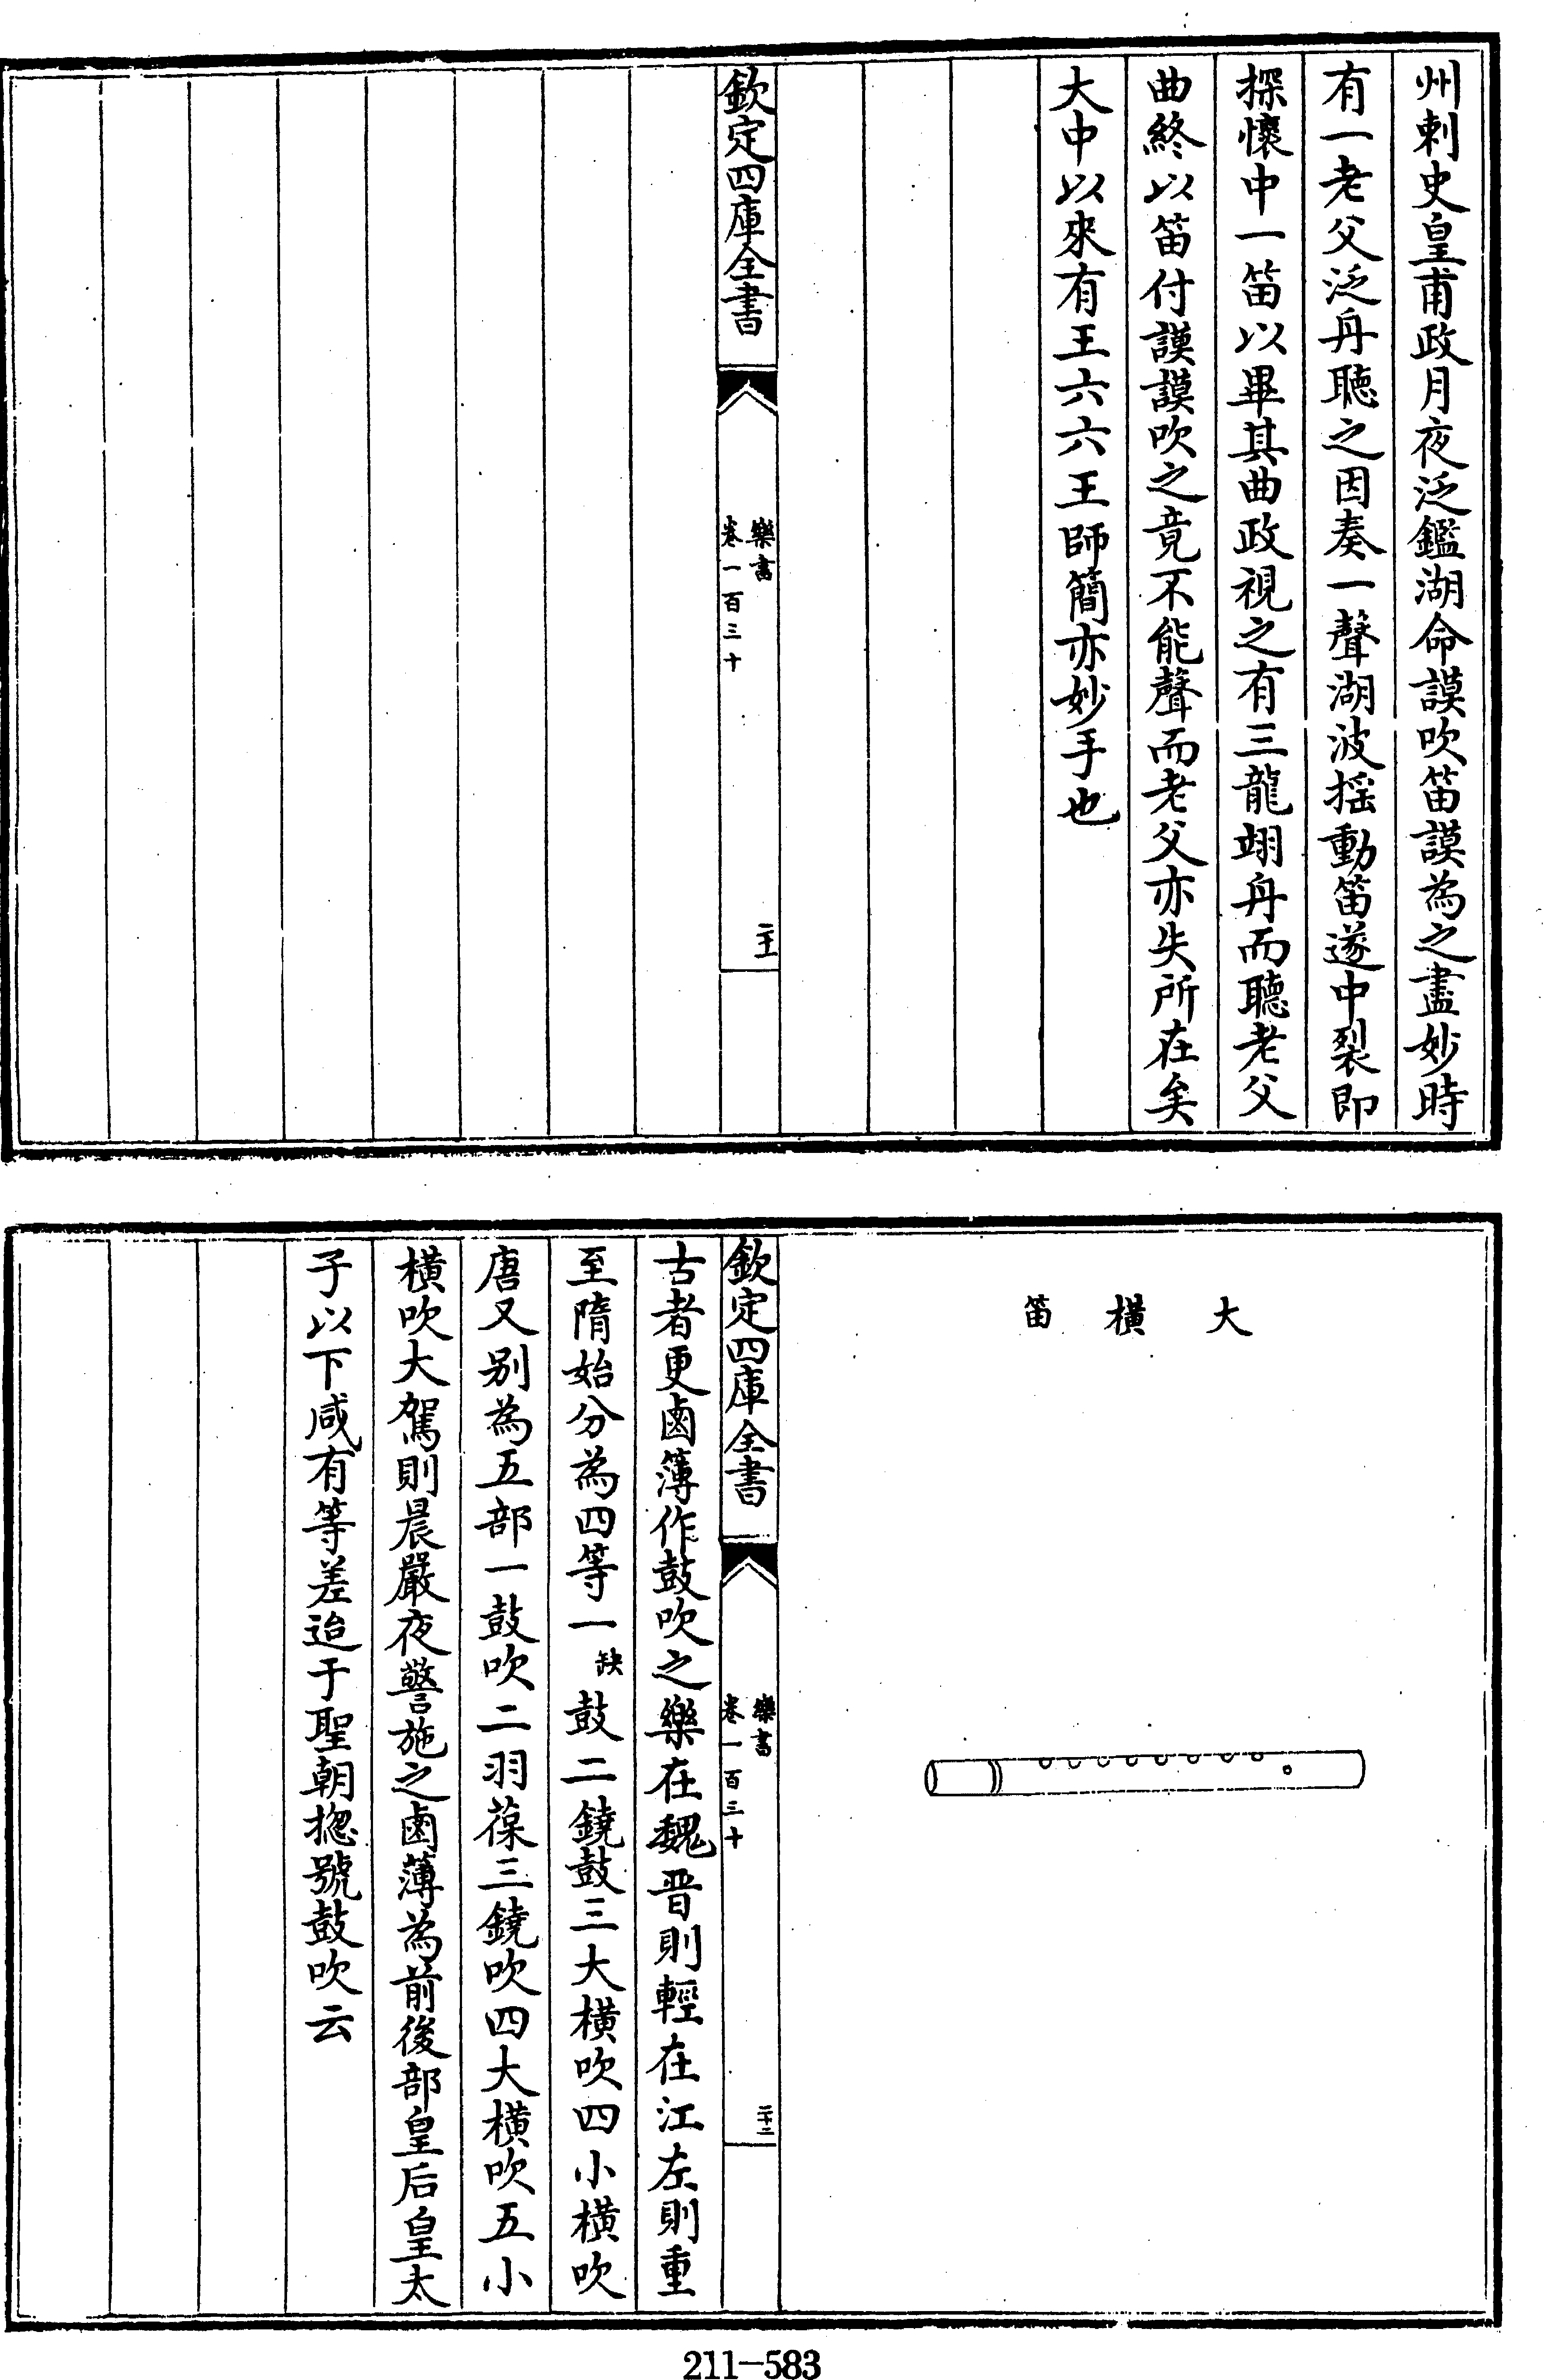 州刺史皇甫政月夜泛鑑湖命謨吹笛謨為之盡妙時
有一老父泛舟聽之因奏一聲湖波揺動笛遂中裂即
探懷中一笛以畢其曲政視之有三龍翊舟而聽老父
曲終以笛付謨謨吹之竟不能聲而老父亦失所在矣
大中以來有王六六王師簡亦妙手也
欽定四庫全書
樂書
卷一百三十
二十一
大橫笛
欽定四庫全書
樂書
卷一百三十
二十二
古者更鹵簿作鼓吹之樂在魏晋則輕在江左則重
至隋始分為四等一缺鼓二鐃鼓三大橫吹四小橫吹
唐又别為五部一鼓吹二羽葆三鐃吹四大橫吹五小
橫吹大駕則晨嚴夜警施之鹵薄為前後部皇后皇太
子以下咸有等差迨于聖朝揔號鼓吹云
211-583